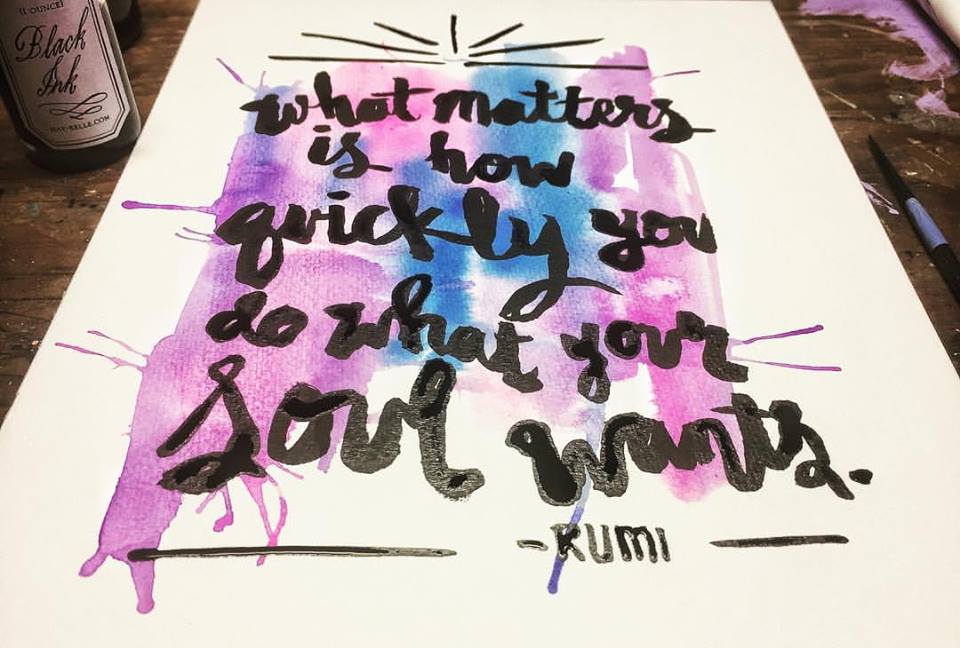 (1 OUNCE)
Black
Ink
what matters
is how
quickly you
do what your
Soul wants.
-RUMI